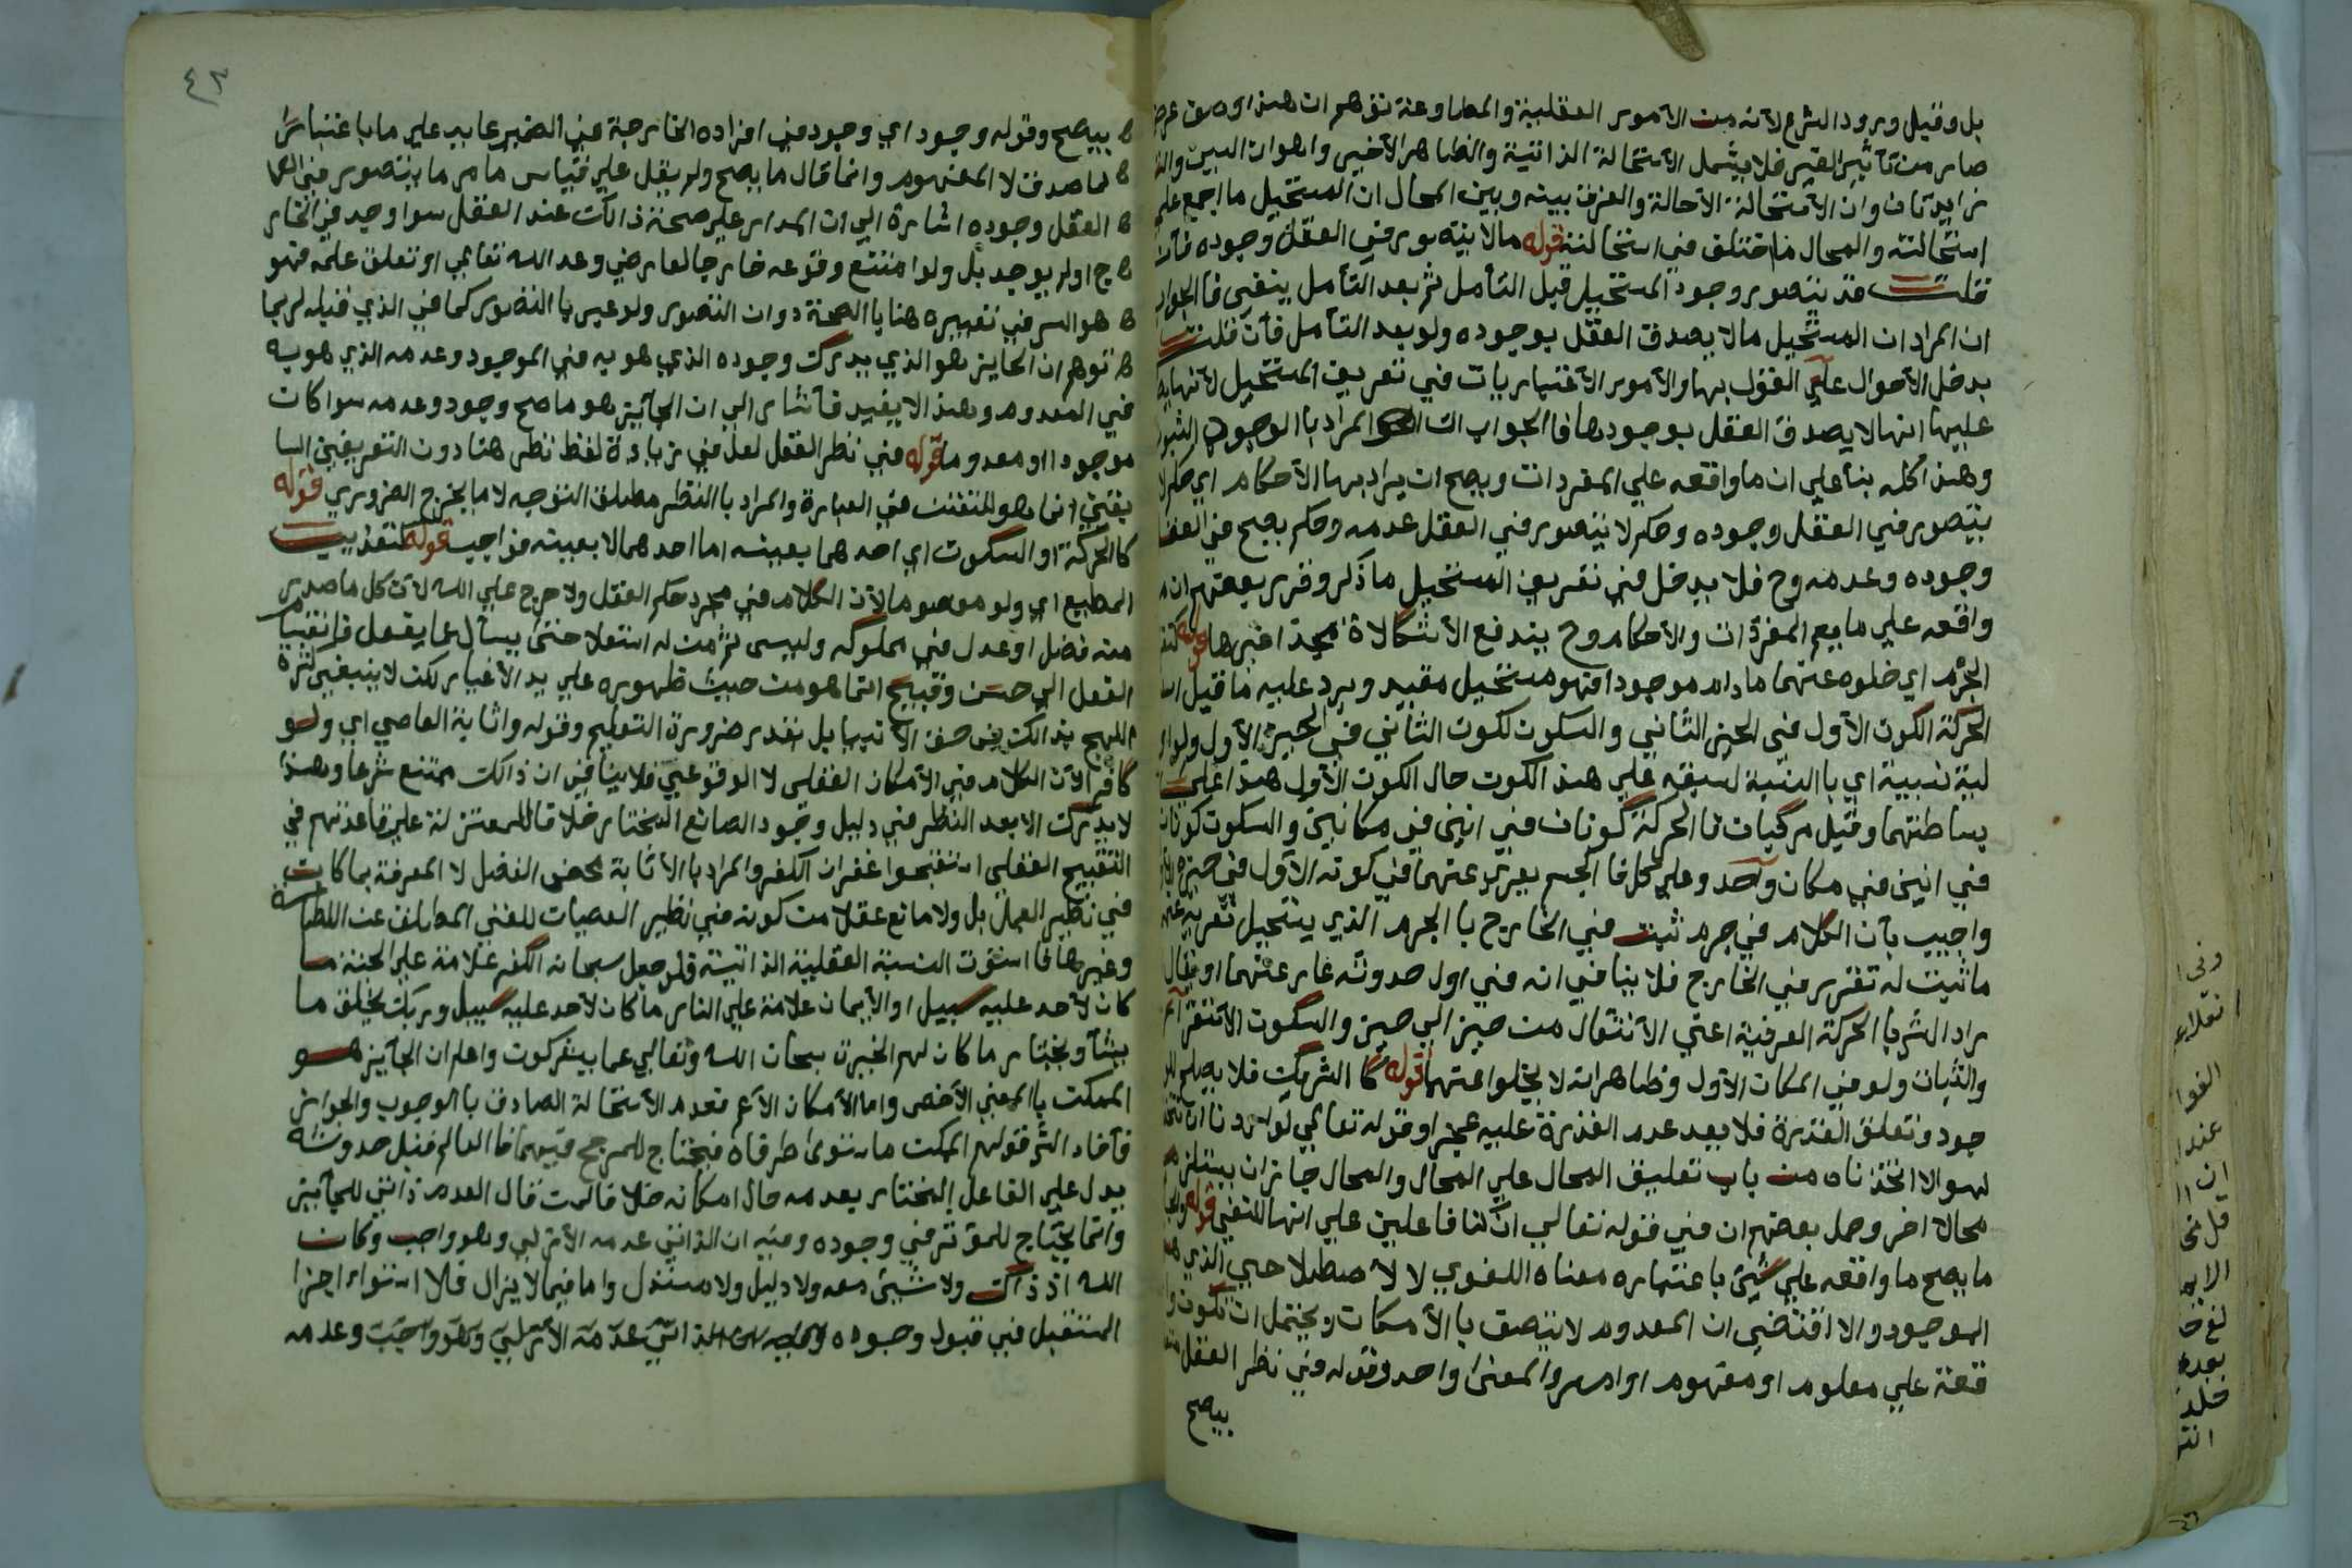 بل وقبل ورود الشرع لانه من الأمور العقلية والمطاوعة توهم ان هذا وصف
صار من تأثير الغير فلا يشمل الأستحالة الذاتية والظاهر الأخير واهوان السين والتا
زايدتان وان الأستحالة الأحالة والفرق بينه وبين المحال ان المستحيل ما اجمع على
استحالته والمحال ما اختلف في استحالته قوله مالا يتصور في العقل وجوده فان
قلت قد يتصور وجود المستحيل قبل التأمل ثم بعد التأمل ينفى فالجواب
ان المراد ان المستحيل مالا يصدق العقل بوجوده ولو بعد التأمل فان قلت
يدخل الأحوال على القول بها والأمور الأعتباريات في تعريف المستحيل لأنها
عليها انها لا يصدق العقل بوجودها فالجواب ان المراد باالوجود الثبوت
وهذا كله بنأ علي ان ما واقعه علي المفردات ويصح ان يراد بها الأحكام اي حكم لا
يتصور في العقل وجوده وحكم لا يتصور في العقل عدمه وحكم يصح في العقل
وجوده وعدمه وح فلا يدخل في تعريف المستحيل ما ذكر وقرر بعضهم ان ما
واقعه علي ما يعم المفردات والأحكام وح يندفع الأشكالاة قوله
الجرم اي خلوه عنهما مادام موجودا فهو مستحيل مقيد ويرد عليه ما قيل
الحركة الكون الأول في الحيز الثاني والسكون لكون الثاني في الحيز الأول
لية نسبية اي باالنسبة لسبقه علي هذ الكون حال الكون الأول هذا علي
بساطتهما وقيل مركبات فا الحركة كونان في انين في مكانين والسكون كونان
في انين في مكان واحد وعلي كل فا الجسم يعري عنهما في كونه الأول في حيزه
واجيب بأن الكلام في جرم ثبت في الخارج باالجرم الذي يستحيل تعريه
ماثبت له تقرر في الخارج فلا ينافي انه في اول حدوثه عار عنهما او يقال
مراد الشر باالحركة العرفية اعني الأنتقال من حيز الي حيز والسكون الأستقرار
والثبات ولو في المكان الأول وظاهر انه لا يخلوا عنهما قوله كاالشريك فلا يصلح
جود وتعلق القدرة فلا يعد عدم القدرة عليه عجزا وقوله تعالي لو اردنا ان نتخذ
لهوا لاتخذناه من باب تعليق المحال علي المحال والمحال جاز ان يستلزم
محالا اخر وحمل بعضهم ان في قوله تعالي ان كنا فاعلين علي انها للنفي قوله
ما يصح ما واقعه علي شئ باعتبار معناه اللغوي لا الأصطلاحي الذي هو
الموجود والا اقتضي ان المعدوم لا يتصف باالأمكان ويحتمل ان تكون
قعة علي معلوم او مفهوم او امر والمعنى واحد وقوله في نظر العقل
يصح
٤٣
يصح وقوله وجود اي وجود في افراده الخارجة في الضمير عايد علي ما باعتبار
لما صدق لا المفهوم وانما قال ما يصح ولم يقل علي قياس ما مر ما يتصور في
العقل وجوده اشارة الي ان المدار علي صحة ذالك عند العقل سوا وجد في الخار
ج او لم يوجد بل ولو امتنع وقوعه خارجا لعارض وعد الله تعالي او تعلق علمه فهو
هو السر في تعبيره هنا باالصحة دوان التصور ولو عبر باالتصور كما في الذي قبله لربما
توهم ان الجايز هو الذي يدرك وجوده الذي هو به في الموجود وعدمه الذي هو به
في المعدوم وهذ الا يفيد فأشار الي ان الجأيز هو ما صح وجود وعدمه سوا كان
موجودا او معدوما قوله في نظر العقل لعل في زيادة لفظ نظر هنا دون التعريفين السا
بقين انما هو للتفنن في العبارة والمراد باالنظر مطلق التوجه لا ما يخرج الضروري قوله
كاالحركة او السكون اي احدهما بعينه اما احدهما لا بعينه فواجب قوله كتعذيب
المطيع اي ولو معصوما لأن الكلام في مجرد حكم العقل ولا حرج علي الله لأن كل ما صدر
منه فضل او عدل في مملوكه وليس ثم من له استعلا حتى يسأل عما يفعل
الفعل الي حسن وقبيح انما هو من حيث ظهوره علي يد الأغيار لكن لا ينبغي كثرة
اللهج بذالك في حق الأنبيا بل بقدر ضرورة التعليم وقوله واثابة العاصي اي ولو
كافرا لأن الكلام في الأمكان العقلي لا الوقوعي فلا ينافي ان ذالك ممتنع شرعا وهذ
لا يدرك الا بعد النظر في دليل وجود الصانع المختار خلافا للمعتزلة علي قاعدتهم في
التقبيح العقلي استقبحوا غفران الكفر والمراد باالأثابة محض الفضل لا المعرفة بما كان
في نظير العمل بل ولا مانع عقلا من كونه في نظير العصيان للغني المطلق عن الطاعة
وغيرها فا استوت النسبة العقلية الذاتية فلو جعل سبحانه الكفر علامة علي الجنة ما
كان لأحد عليه سبيل او الأيمان علامة علي النار ما كان لأحد عليه سبيل وربك يخلق ما
يشأ ويختار ما كان لهم الخيرة سبحان الله وتعالي عما يشركون واعلم ان الجأيز هو
الممكن باالمعني الأخص واما الأمكان الأعم فعدم الأستحالة الصادق باالوجوب والجواز
فأفاد الشر قولهم الممكن ما استوي طرفاه فيحتاج للمرجح فيهما فا العالم قبل حدوثه
يدل علي الفاعل المختار بعدمه حال امكانه خلافا لمن قال العدم ذاتي للجأيز
وانما يحتاج للمؤثر في وجوده وفيه ان الذاتي عدمه الأزلي وهو واجب وكان
الله اذ ذاك ولا شيئ معه ولا دليل ولا مستدل واما فيما لا يزال فلا استواء
المستقبل في قبول وجوده الذاتي عدمه الأزلي وهو واجب وعدمه